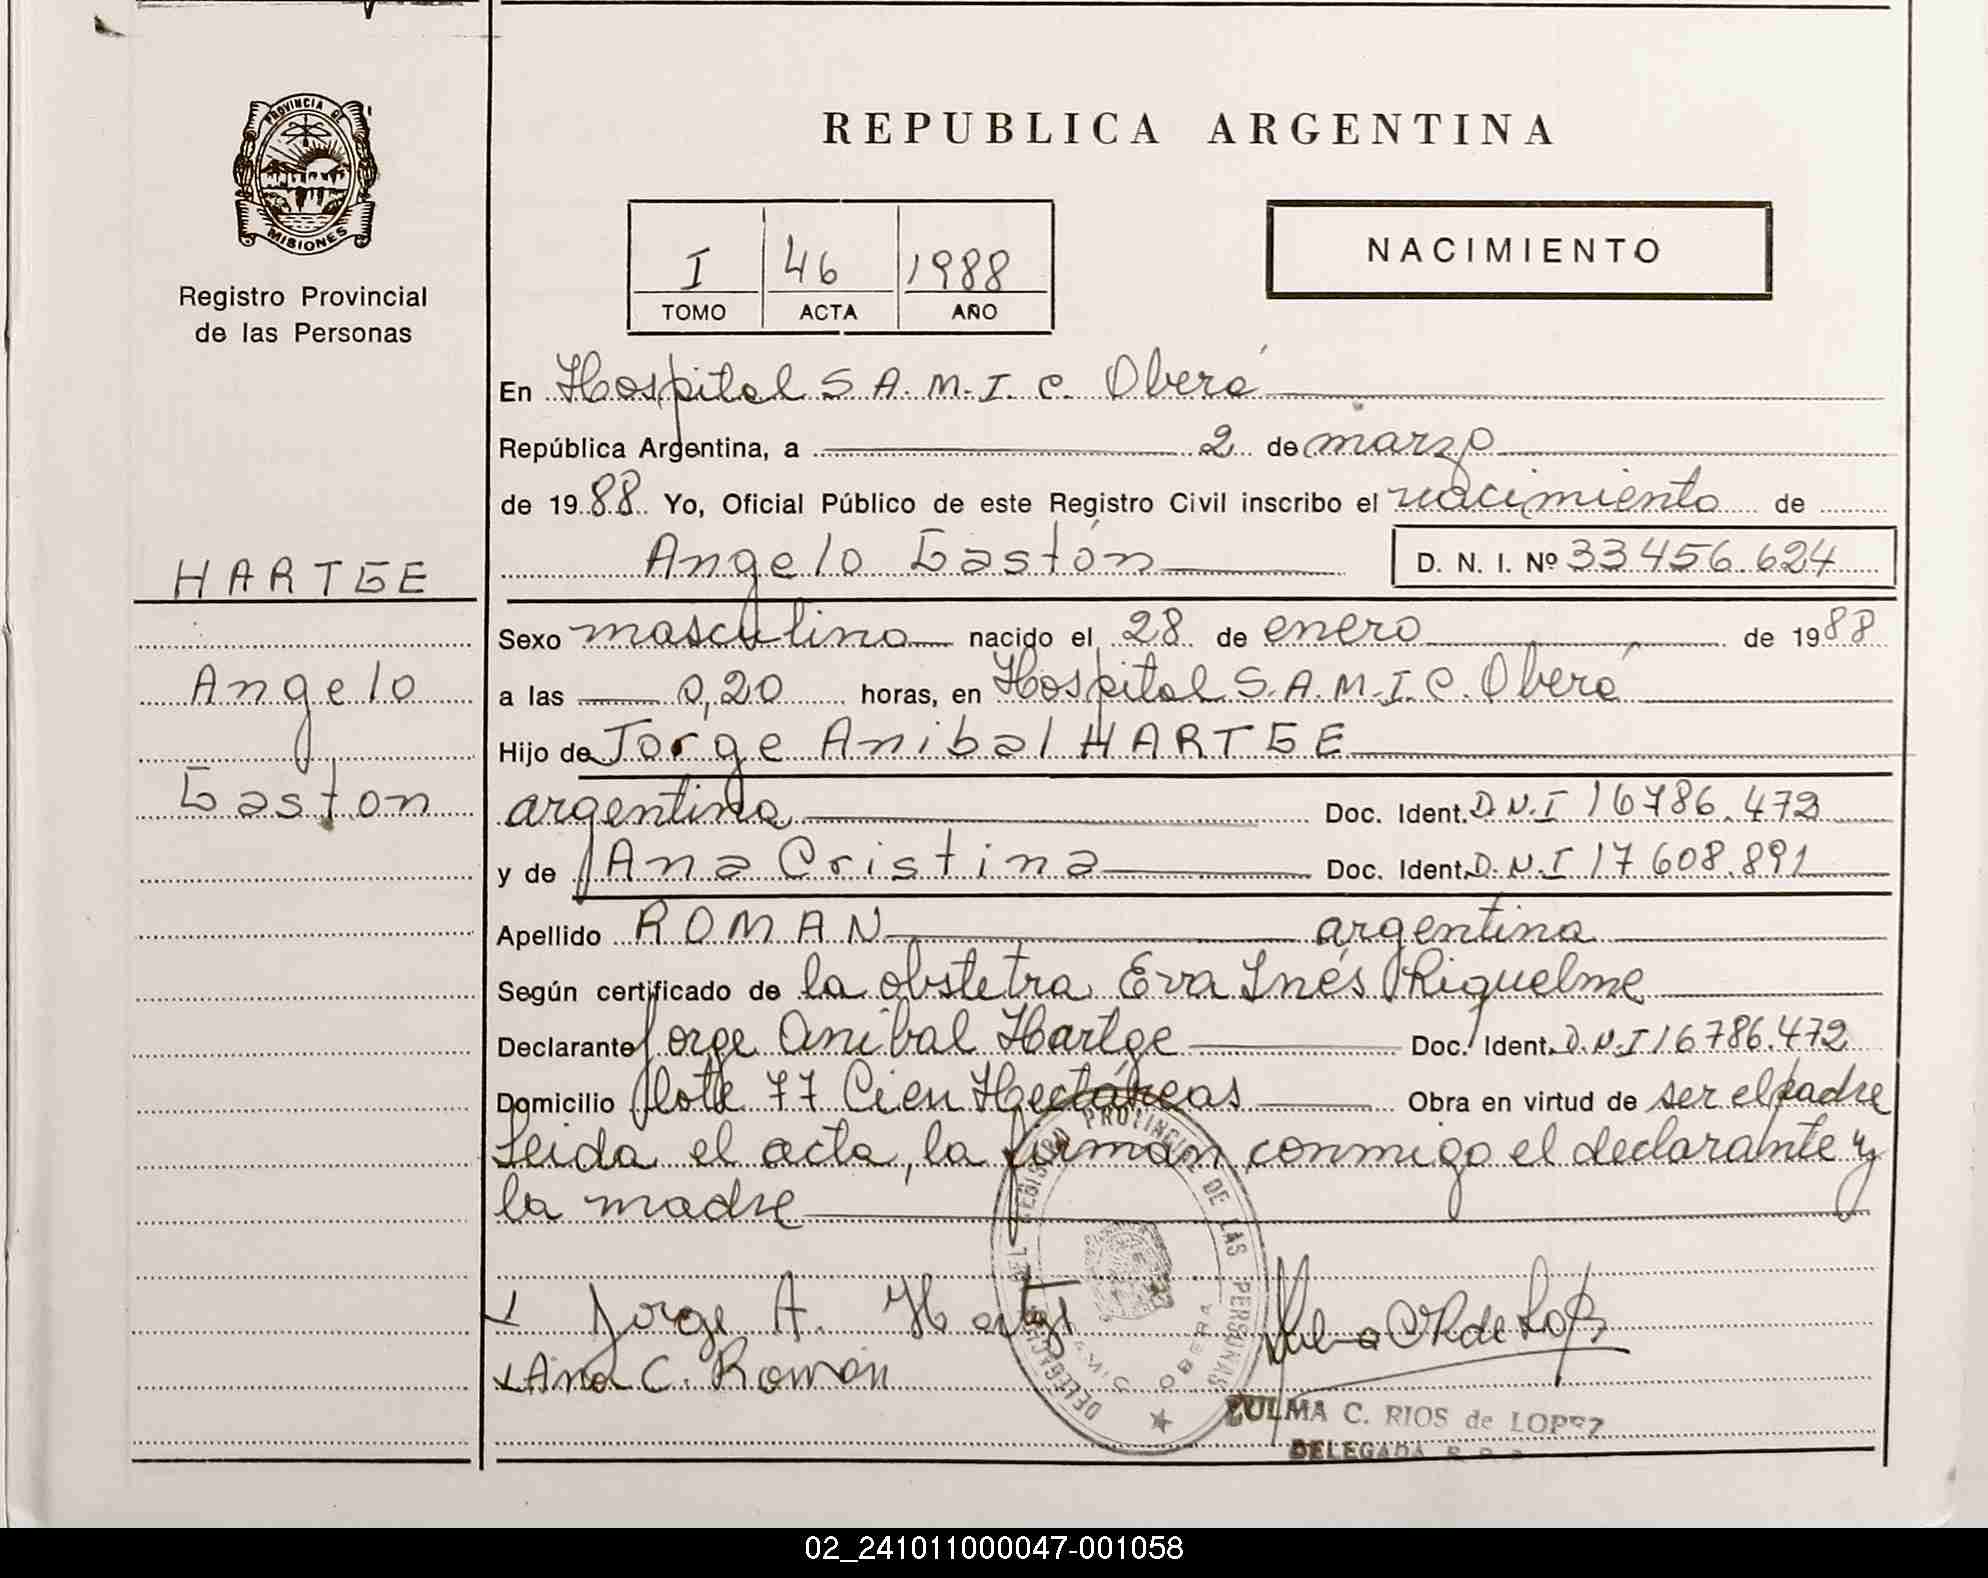 PROVINCIA DE
MISIONES
Registro Provincial
de las Personas
HARTGE
Angelo
Gaston
REPUBLICA ARGENTINA
I 46 1988
TOMO ACTA AÑO
NACIMIENTO
En Hospital S.A.M.I.C. Oberá
República Argentina, a 2 de marzo
de 1988 Yo, Oficial Público de este Registro Civil inscribo el nacimiento de
Angelo Gastón D. N. I. Nº 33456.624
Sexo masculino nacido el 28 de enero de 1988
a las 0,20 horas, en Hospital S.A.M.I.C. Oberá
Hijo de Jorge Anibal HARTGE
argentina Doc. Ident. D.N.I 16786.472
y de Ana Cristina Doc. Ident. D.N.I 17608.891
Apellido ROMAN argentina
Según certificado de la obstetra Eva Inés Riquelme
Declarante Jorge Anibal Hartge Doc. Ident. D.N.I 16786.472
Domicilio Lote 77 Cien Hectáreas Obra en virtud de ser el padre
Leida el acta, la firman conmigo el declarante y
la madre
Jorge A. Hartge
Ana C. Román
DELEGACION DEL REGISTRO PROVINCIAL DE LAS PERSONAS
SAMIC OBERA
ZULMA C. RIOS de LOPEZ
DELEGADA
02_241011000047-001058